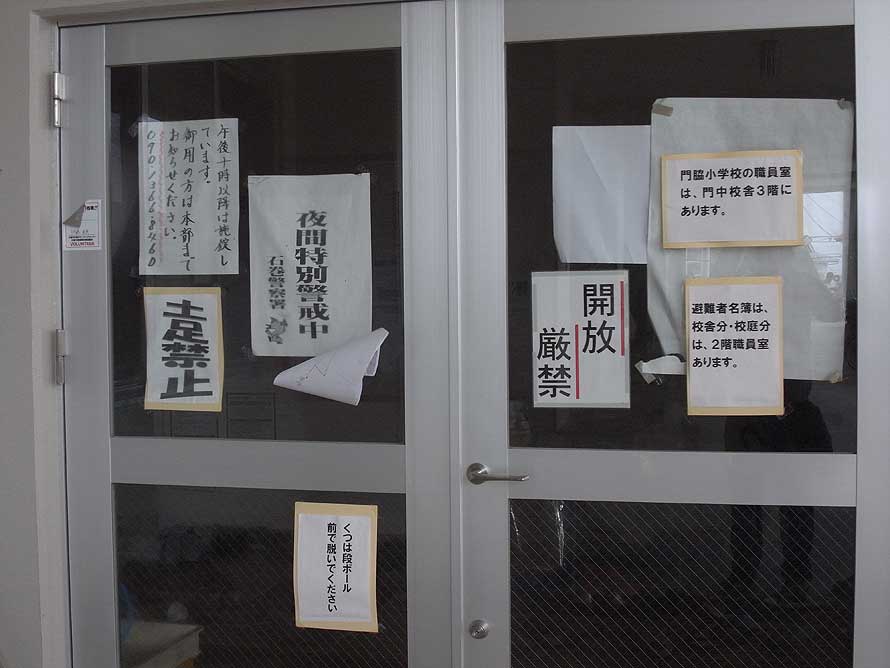 午後十時以降は施錠し
ています。
御用の方は本部まで
お知らせください。
090-1366-8460
夜間特別警戒中
石巻警察署
土足禁止
VOLUNTEER
くつは段ボール
前で脱いでください
門脇小学校の職員室
は、門中校舎3階に
あります。
開放
厳禁
避難者名簿は、
校舎分・校庭分
は、2階職員室
あります。